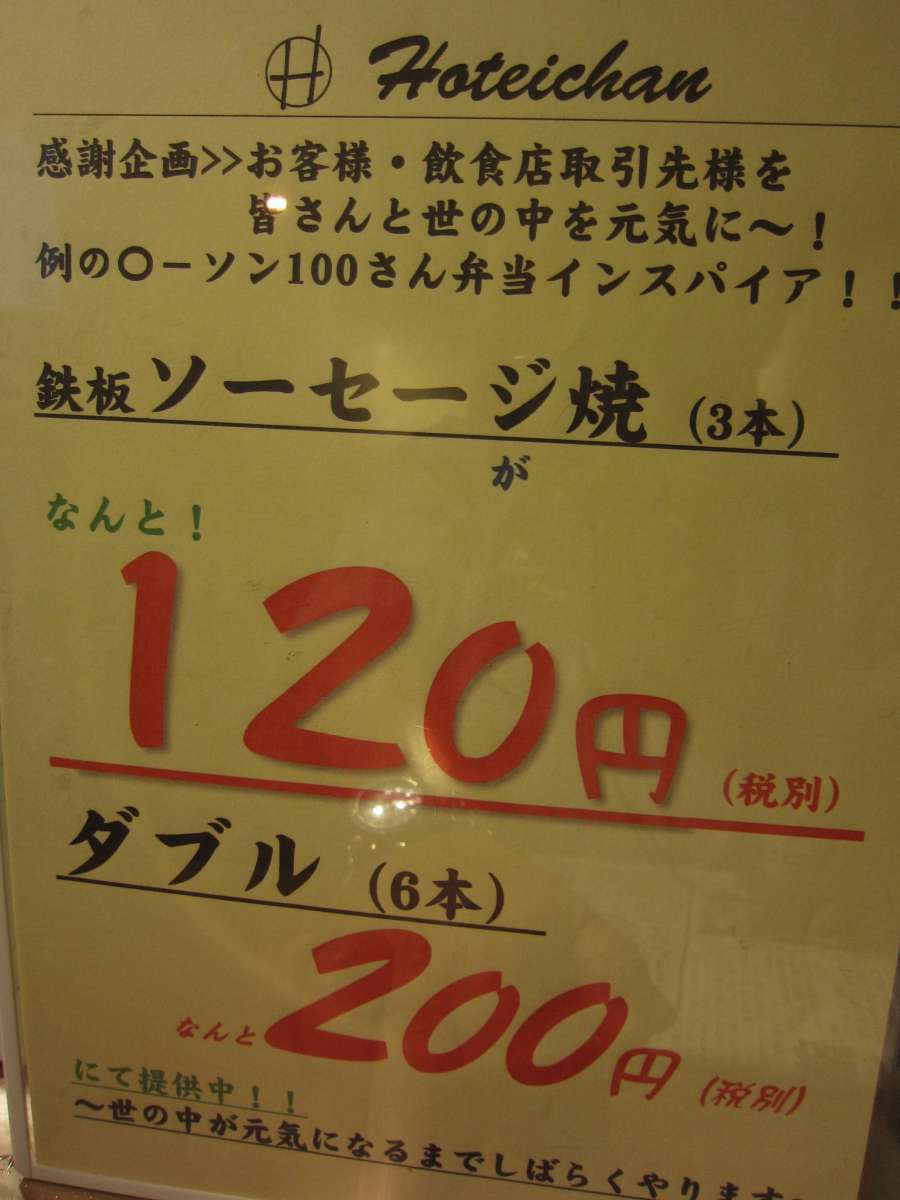 H Hoteichan
感謝企画>>お客様・飲食店取引先様を
皆さんと世の中を元気に～！
例の〇－ソン100さん弁当インスパイア！！
鉄板ソーセージ焼（3本）
が
なんと！
120円（税別）
ダブル（6本）
なんと200円（税別）
にて提供中！！
～世の中が元気になるまでしばらくやります